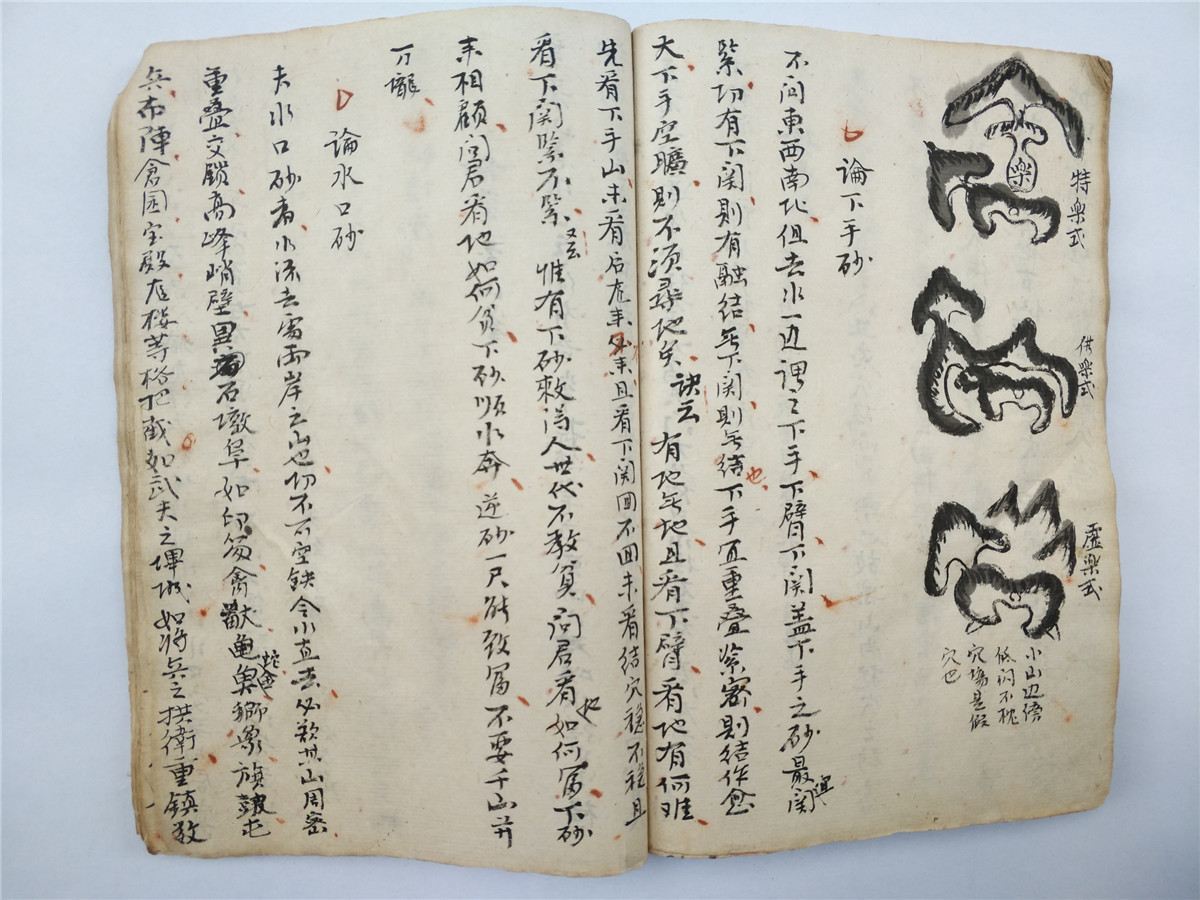 特樂式
樂
供樂式
虛樂式
小山边倚
低凹不枕
穴塲是假
穴巴
論下手砂
不问東西南北但去水一边謂之下手下臂下関盖下手之砂最関
緊切有下関則有融結無下関則無結也下手宜重叠紧密則結作愈
大下手空曠則不須尋地矣訣云有地無地且看下臂看地有何难
先看下手山未看后龙来未且看下関回不回未看結穴穏不穏且
看下関緊不緊又云惟有下砂救済人世代不教貧问君看地如何富下砂
来相顧问君看地如何貧下砂順水奔逆砂一尺能致富不要千山并
万壠
論水口砂
夫水口砂者水流去處両岸之山也切不可空缺令水直去必欲其山周密
重叠交鎖高峰峭壁異石墩阜如印笏禽獣龜魚蛇獅象旗皷屯
兵布陣倉囤宝殿龙楼等格把截如武夫之城如將兵之拱衛重鎮数